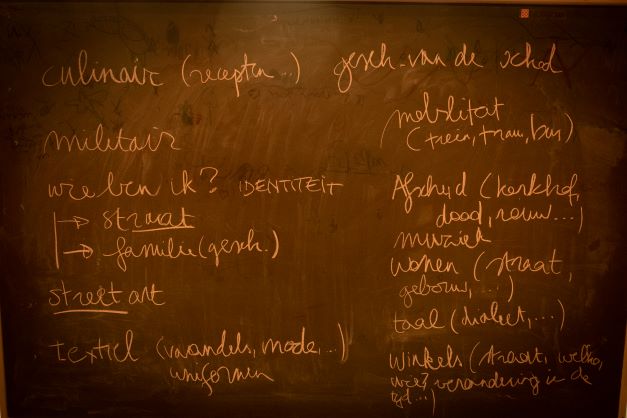 culinair (recepten...)
militair
wie ben ik? IDENTITEIT
→ straat
→ familie (gesch.)
street art
textiel (vaandels, mode,...)
uniformen
gesch. van de school
mobiliteit
(trein, tram, bus)
Afscheid (kerkhof,
dood, rouw...)
muziek
wonen (straat,
gebouw,...)
taal (dialect,...)
winkels (straat, welke,
wie? verandering in de
tijd...)